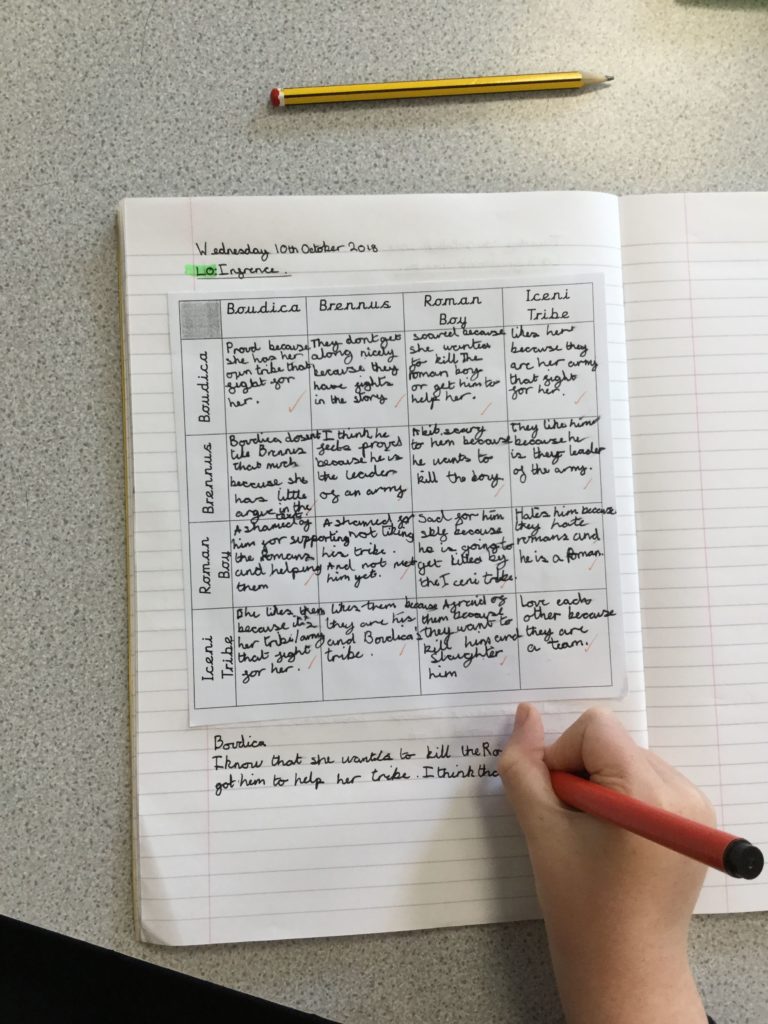 Wednesday 10th October 2018
LO: Infrence.
Boudica
Brennus
Roman
Boy
Iceni
Tribe
Boudica
Proud because
she has her
own tribe that
fight for
her.
They dont get
along nicely
because they
have fights
in the story
scared because
she wanted
to kill the
Roman boy
or get him to
help her.
likes her
because they
are her army
that fight
for her.
Brennus
Boudica dosent
like Brenns
that much
because she
has little
argue in the
I think he
feels proud
because he is
the leader
of an army
A bit scary
to him because
he wants to
kill the boy.
They like him
because he
is they leader
of the army.
Roman
Boy
Ashamed of
him for supporting
the Romans
and helping
them
Ashamed for
not liking
his tribe.
And not met
him yet.
Sad for him
self because
he is going to
get killed by
the Iceni tribe.
Hates him because
they hate
romans and
he is a Roman.
Iceni
Tribe
She likes them
because its
her tribe/army
that fight
for her.
likes them because
they are his
and Boudica's
tribe.
Afraid of
them because
they want to
kill him and
slaughter
him
Love each
other because
they are
a team.
Boudica
I know that she wants to kill the Ro
got him to help her tribe. I think tha